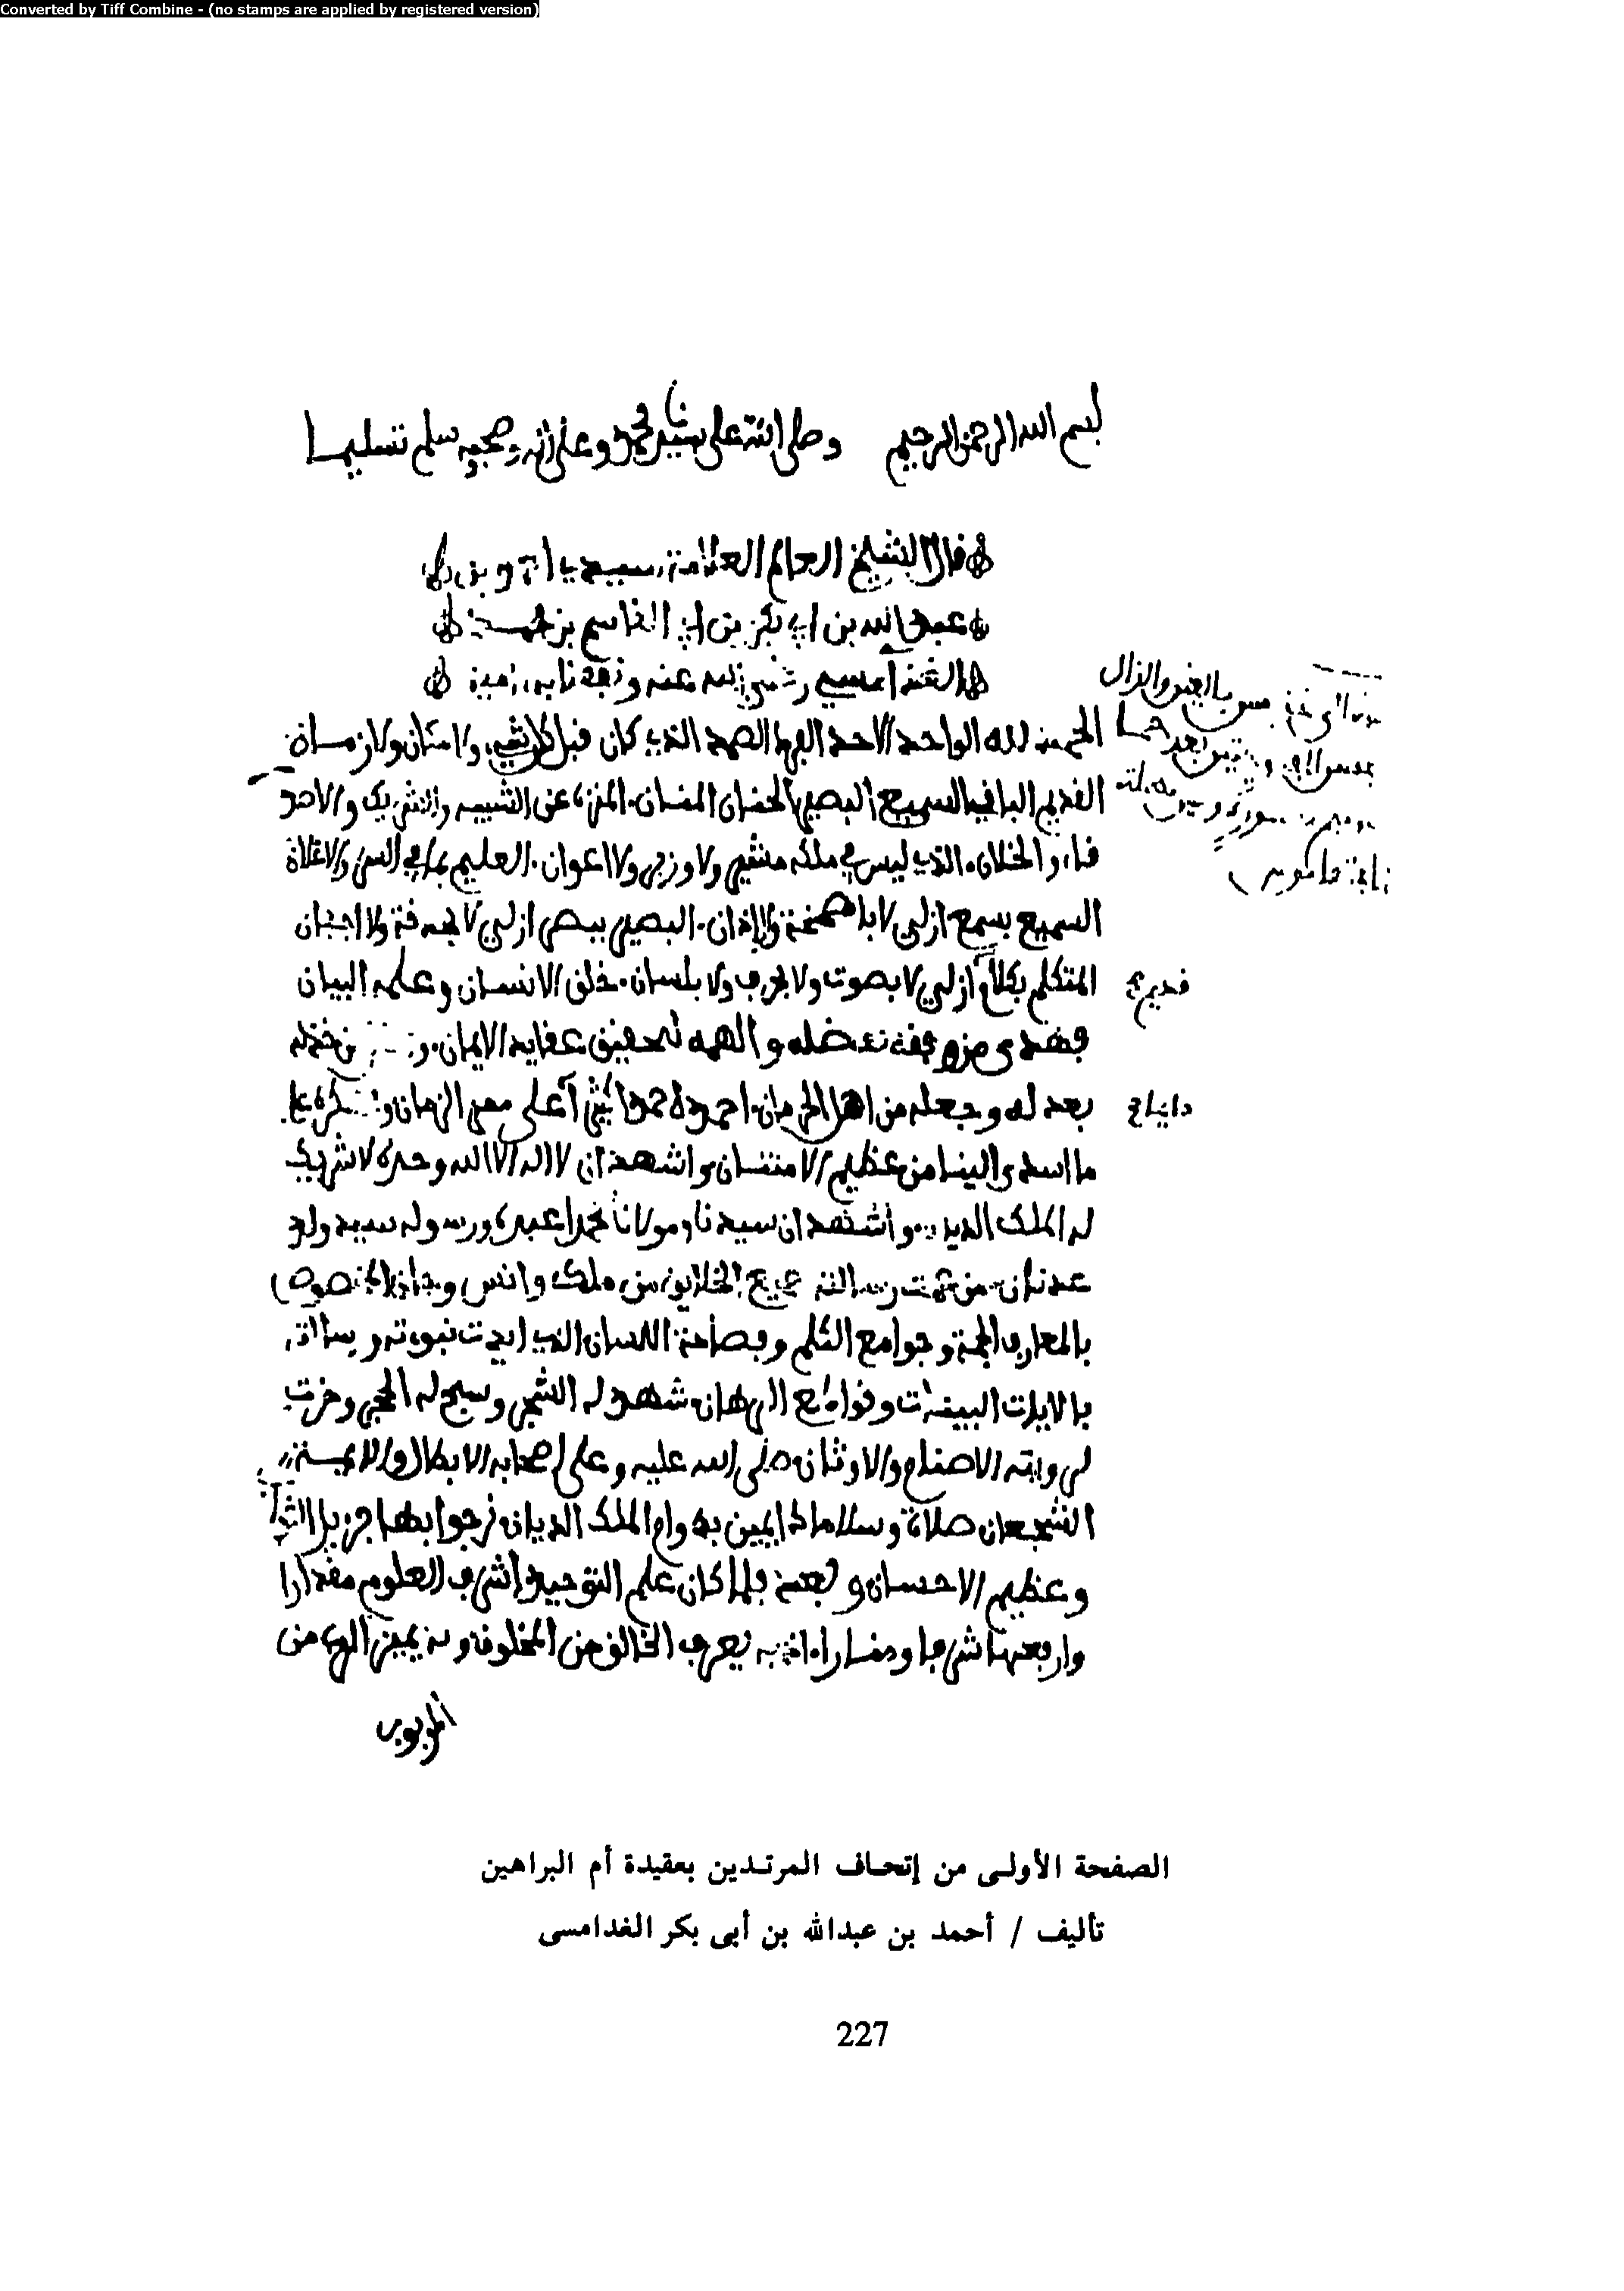 Converted by Tiff Combine - (no stamps are applied by registered version)
بسم الله الرحمن الرحيم وصلى الله على سيدنا محمد وعلى آله وصحبه وسلم تسليما
قال الشيخ العالم العلامة سيدي احمد بن
عبد الله بن ابي بكر بن ابي القاسم بن محمد
الغدامسي رضي الله عنه ونفعنا به امين
الحمد لله الواحد الاحد الفرد الصمد الذي كان قبل كل شيء ولا مكان ولا زمان
القديم الباقي السميع البصير الحنان المنان المنزه عن الشبيه والشريك
الذي ليس في ملكه مشير ولا وزير ولا اعوان العليم بما في السر والاعلان
السميع بسمع ازلي لا باصمخة ولا اذان البصير ببصر ازلي لا بحدقة ولا اجفان
المتكلم بكلام ازلي لا بصوت ولا بحرف ولا بلسان خلق الانسان وعلمه البيان
قديم
فهدى من وفقه بفضله والهمه لتحقيق عقايد الايمان من خذله
بعدله وجعله من اهل الحرمان احمده حمدا كثيرا على ممر الزمان
ما اسدى الينا من عظيم الامتنان واشهد ان لا اله الا الله وحده لا شريك
له الملك الديان واشهد ان سيدنا ومولانا محمدا عبده ورسوله سيد ولد
عدنان من عمت رسالته جميع الخلايق من ملك وانس وجان المخصوص
بالمعارف الجمة وجوامع الكلم وفصاحة اللسان الذي ايدت نبوته ورسالته
بالايات البينات وقواطع البرهان شهد له الشجر وسبح له الحجر وخرت
لرويته الاصنام والاوثان صلى الله عليه وعلى اصحابه الابطال والايمة
الشجعان صلاة وسلاما دايمين بدوام الملك الديان نرجو بهما جزيل الثواب
وعظيم الاحسان وبعد فلما كان علم التوحيد اشرف العلوم مقدارا
وارفعها شرفا ومنارا اذ به يعرف الخالق من المخلوق وبه يميز الرب من
المربوب
الصفحة الأولى من إتحاف المرتدين بعقيدة أم البراهين
تأليف / أحمد بن عبدالله بن أبى بكر الغدامسى
227